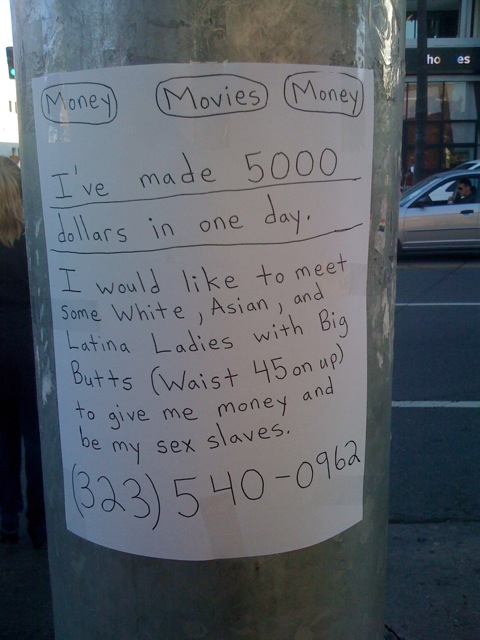 Money Movies Money
I've made 5000
dollars in one day.
I would like to meet
some White, Asian, and
Latina Ladies with Big
Butts (Waist 45 on up)
to give me money and
be my sex slaves.
(323) 540-0962